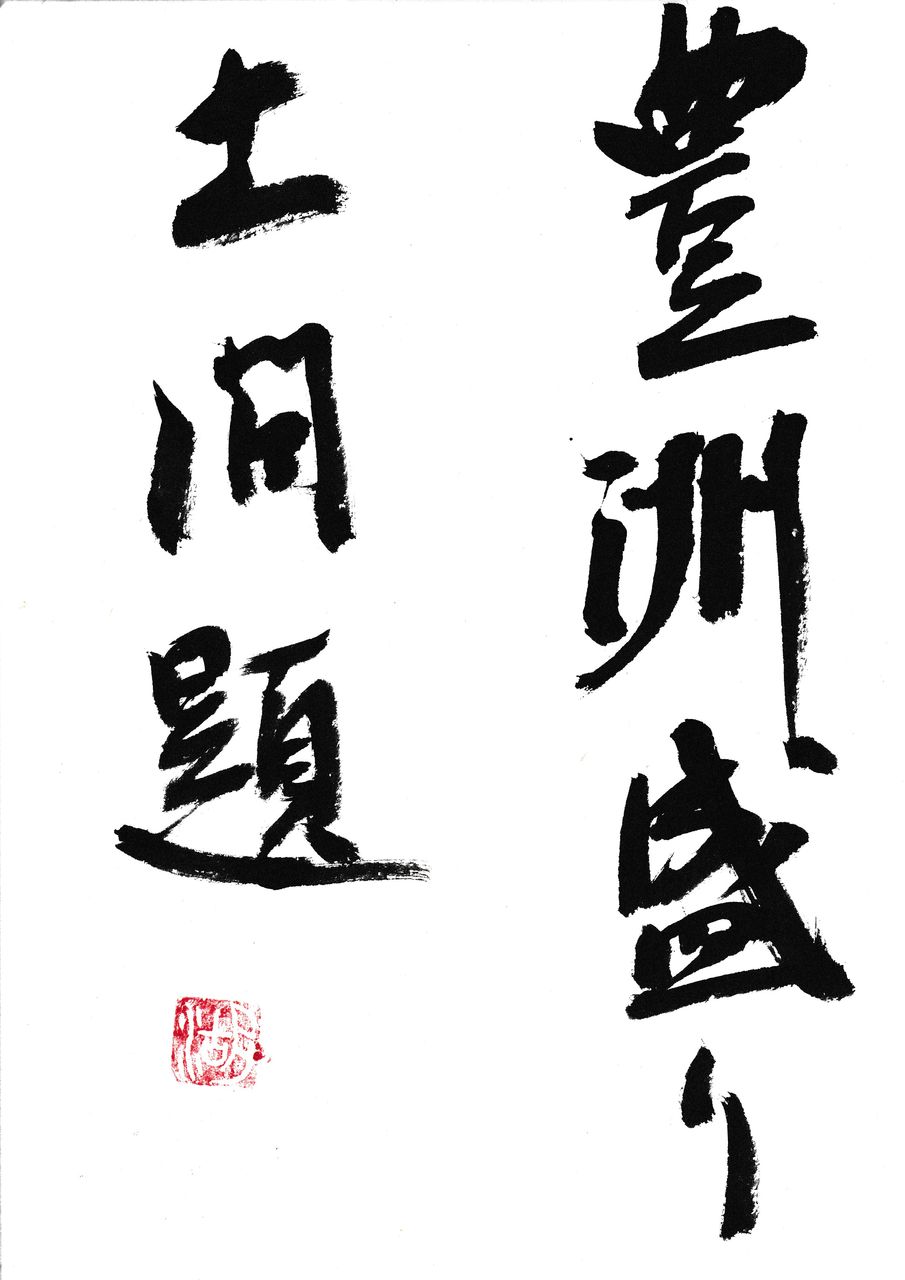 豊洲盛り
土問題